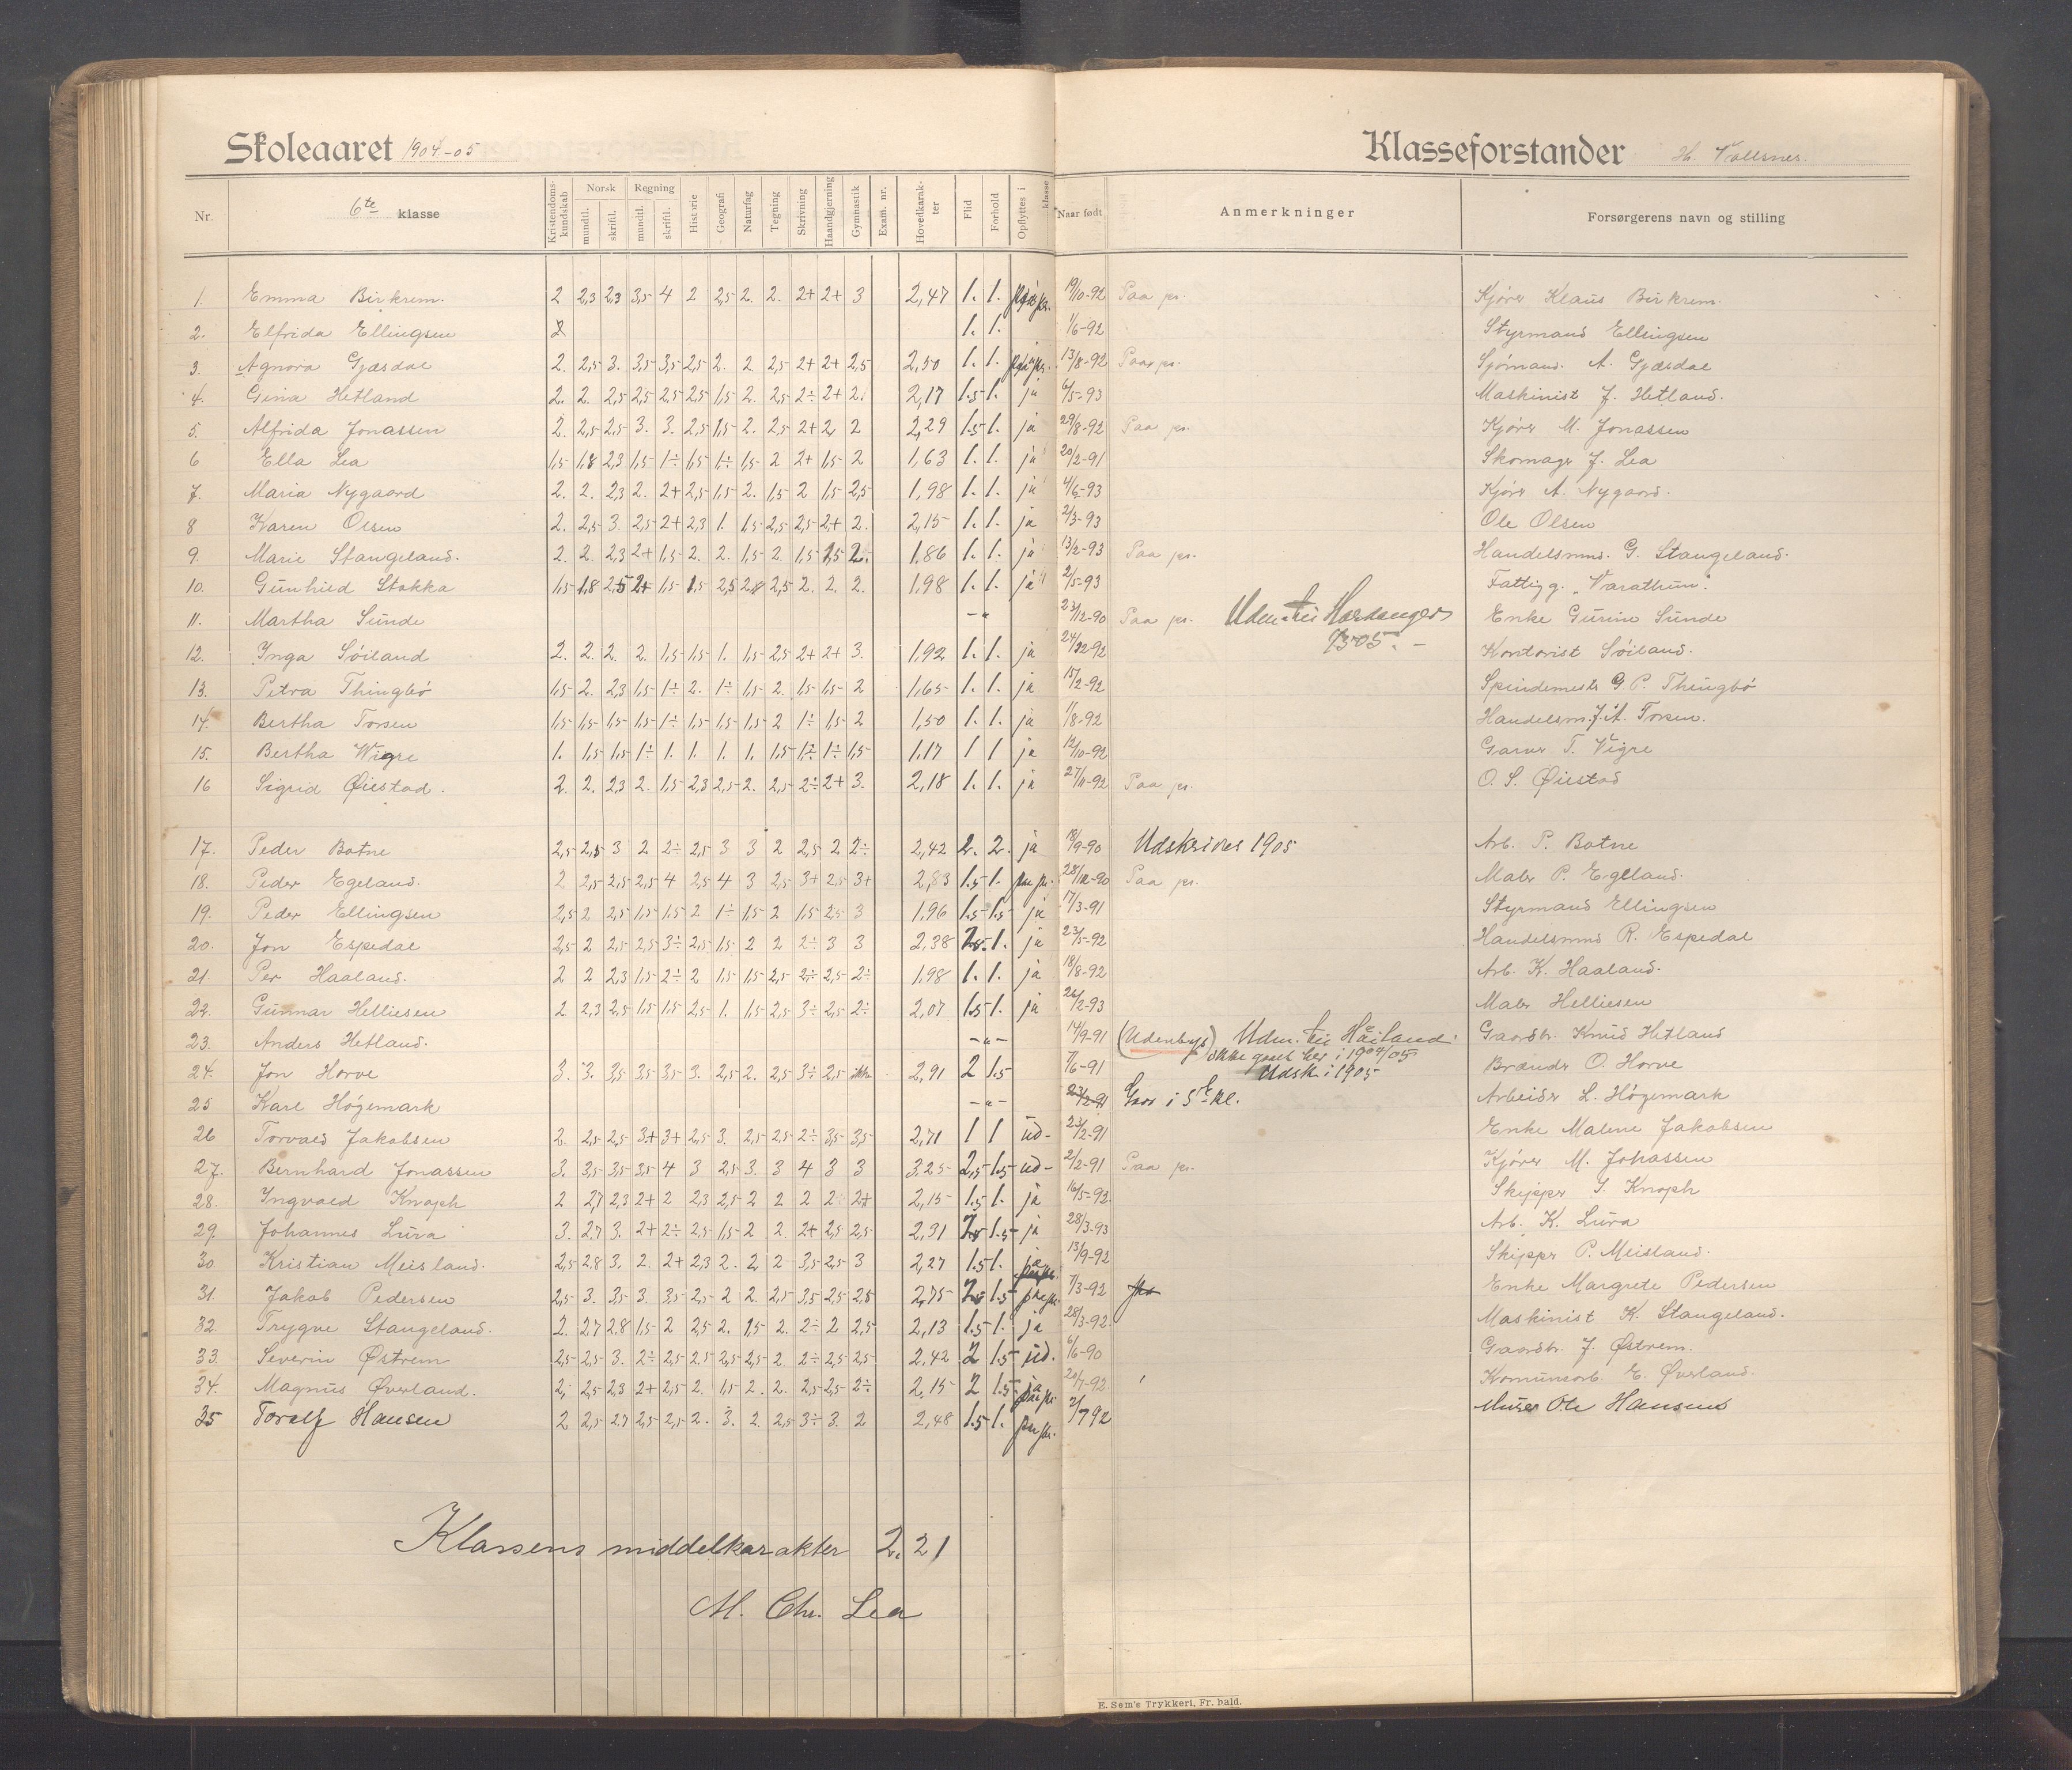 Skoleaaret 1904-05
Klasseforstander H. Vallsnes.
Nr. 6te klasse Kristendomskundskab Norsk mundtl. skriftl. Regning mundtl. skriftl. Historie Geografi Naturfag Tegning Skrivning Haandgjerning Gymnastik Exam. nr. Hovedkarakter Flid Forhold Opflyttes i klasse Naar født Anmerkninger Forsørgerens navn og stilling
1. Emma Birkrem. 2 2,3 2,3 3,5 4 2 2,5 2. 2. 2+ 2+ 3 2,47 1. 1. 19/10-92 Paa pr. Kjører Klaus Birkrem.
2. Elfrida Ellingsen 2 1. 1. 1/6-92 Styrmand Ellingsen
3. Agnora Gjesdal 2. 2,5 3. 3,5 3,5 2,5 2. 2. 2,5 2+ 2+ 2,5 2,50 1. 1. 13/8-92 Paa pr. Sjømand. A. Gjesdal
4. Gina Hetland 2. 2. 2,5 2,5 2,5 2,5 1,5 2. 2,5 2÷ 2+ 2. 2,17 1.5 1. ja 6/5-93 Maskinist J. Hetland.
5. Alfrida Jonassen 2. 2,5 2,5 3. 3. 2,5 1,5 2. 2,5 2+ 2, 2 2,29 1.5 1. ja 29/8-92 Paa pr. Kjører M. Jonassen
6 Ella Lea 1,5 1,8 2,3 1,5 1÷ 1,5 1÷ 1,5 2 2+ 1,5 2 1,63 1. 1. ja 20/2-91 Skomager J. Lea
7. Maria Nygaard 2. 2. 2,3 2. 2+ 2,5 1,5 2. 1,5 2 1,5 2,5 1,98 1. 1. ja 4/6-93 Kjører A. Nygaard.
8 Karen Olsen 2. 2,5 3. 2,5 2+ 2,3 1. 1,5 2,5 2,5 2+ 2. 2,15 1. 1. ja 2/3-93 Ole Olsen
9. Marie Stangeland. 2. 2. 2,3 2+ 1,5 2. 2. 1,5 2. 1,5 1,5 2. 1,86 1. 1. ja 13/2-93 Paa pr. Handelsmd. G. Stangeland.
10. Gunhild Stokka 1,5 1,8 2,5 2+ 1,5 1,5 2,5 2,8 2,5 2. 2. 2. 1,98 1. 1. ja 2/5-93 Fattigg. "Varathun".
11. Martha Sunde -"- 23/12-90 Paa pr. Udm. til Hardanger Enke Gurine Sunde
1/3 05. -
12. Inga Søiland 2. 2. 2. 2. 1,5 1,5 1. 1,5 2,5 2+ 2+ 3. 1,92 1. 1. ja 24/12-92 Kontorist Søiland.
13. Petra Thingbø 1,5 2. 2,3 1,5 1÷ 2. 1÷ 1,5 2. 1,5 1,5 2 1,65 1. 1. ja 15/2-92 Spindemester G. P. Thingbø
14. Bertha Torsen 1,5 1,5 1,5 1,5 1÷ 1,5 1,5 1,5 2 1÷ 1,5 2 1,50 1. 1. ja 1/8-92 Handelsm. J. A. Torsen.
15. Bertha Wigre 1. 1,5 1,5 1÷ 1. 1. 1. 1. 1,5 1÷ 1÷ 1,5 1,17 1 1 ja 12/10-92 Garver T. Vigre
16 Sigrid Øiestad. 2. 2. 2,3 2. 1,5 2,3 2,5 2. 2,5 2÷ 2+ 3. 2,18 1. 1. ja 27/11-92 Paa pr. O. S. Øiestad
17. Peder Botne 2,5 2,5 3 2 2÷ 2,5 3 3 2 2,5 2 2÷ 2,42 2. 2. ja 18/9-90 Udskrives 1905 Arb. P. Botne
18. Peder Egeland. 2 2,5 2,5 2,5 4 2,5 4 3 2,5 3+ 2,5 3+ 2,83 1.5 1. paa pr. 28/12-90 Paa pr. Maler P. Egeland.
19. Peder Ellingsen 2,5 2 2,5 1,5 1,5 2 1÷ 1,5 2 1,5 2,5 3 1,96 1.5 1.5 ja 17/3-91 Styrmand Ellingsen
20. Jon Espedal 2,5 2 2,5 2,5 3÷ 2,5 1,5 2 2 2÷ 3 3 2,38 1. ja 23/5-92 Handelsmd R. Espedal
21 Per Haaland. 2 2 2,3 1,5 2÷ 2 1,5 1,5 2,5 2÷ 2,5 2÷ 1,98 1. 1. ja 18/8-92 Arb. K. Haaland.
22. Gunnar Helliesen 2 2,3 2,5 1,5 1,5 2,5 1. 1,5 2,5 3÷ 2,5 2÷ 2,07 1.5 1. ja 26/2-93 Maler Helliesen
23. Anders Hetland. -"- 14/9-91 (Udenbys) Udm. til Høiland. Gaardbr. Knud Hetland
ikke gaaet her i 1904/05
24. Jon Horve 3. 3. 3,5 3,5 3,5 3. 2,5 2. 2,5 3÷ 2,5 ikke 2,91 2 1.5 7/6-91 Udsk. i 1905 Brænder O. Horve
25 Karl Høgemark -"- 23/2-91 Gaar i 5te kl. Arbeider L. Høgemark
26 Torvald Jakobsen 2. 2,5 2,5 3+ 3+ 2,5 3. 2,5 2,5 2÷ 3,5 3,5 2,71 1 1 ud- 23/2-91 Enke Malene Jakobsen
27. Bernhard Jonassen 3. 3,5 3,5 3,5 4 3 2,5 3. 3 4 3 3 3.25 2,5 1.5 ud- 2/2-91 Paa pr. Kjører M. Johassen
28. Ingvald Knoph 2 2,7 2,3 2+ 2 2,3 2,5 2 2 2 2 2+ 2,15 1.5 1. ja 16/5-92. Skipper S. Knoph
29. Johannes Lura 3. 2.7 3. 2+ 2÷ 2,5 1,5 2 2. 2+ 2,5 2,5 2,31 1.5 ja 28/3-93 Arb. K. Lura
30 Kristian Meisland. 2,5 2.8 3. 2. 2+ 2,3 2. 2. 2 3,5 2,5 3 2,27 1.5 1. ja 13/9-92 Skipper P. Meisland.
31. Jakob Pedersen 2,5 3. 3,5 3. 3,5 2,5 2 2. 2,5 3,5 2,5 2,5 2,75 1.5 7/3-92 Enke Margrete Pedersen
32. Trygve Stangeland. 2. 2.7 2.8 1,5 2 2,5 2. 1,5 2. 2÷ 2 2,5 2,13 1.5 1. ja 28/3-92. Maskinist K. Stangeland.
33. Severin Østrem 2,5 2,5 3. 2÷ 2,5 2.5 2,5 2,5 2. 2÷ 2,5 2,5 2,42 2 1.5 ud. 6/6-90 Gaardbr. J. Østrem.
34. Magnus Øverland. 2, 2,5 2,3 2+ 2,5 2. 1,5 2. 2. 2,5 2,5 2÷ 2,15 2 1.5 ja 20/7-92. Komunearb. E. Øverland.
35 Toralf Hansen 2 2,5 2.7 2,5 2,5 2. 3. 2. 2,5 3÷ 3. 2 2,48 1.5 1. paa pr. 2/7 92 Murer Ole Hansen
Klassens middelkarakter 2.21
M. Chr. Lea
E. Sem's Trykkeri, Fr.hald.